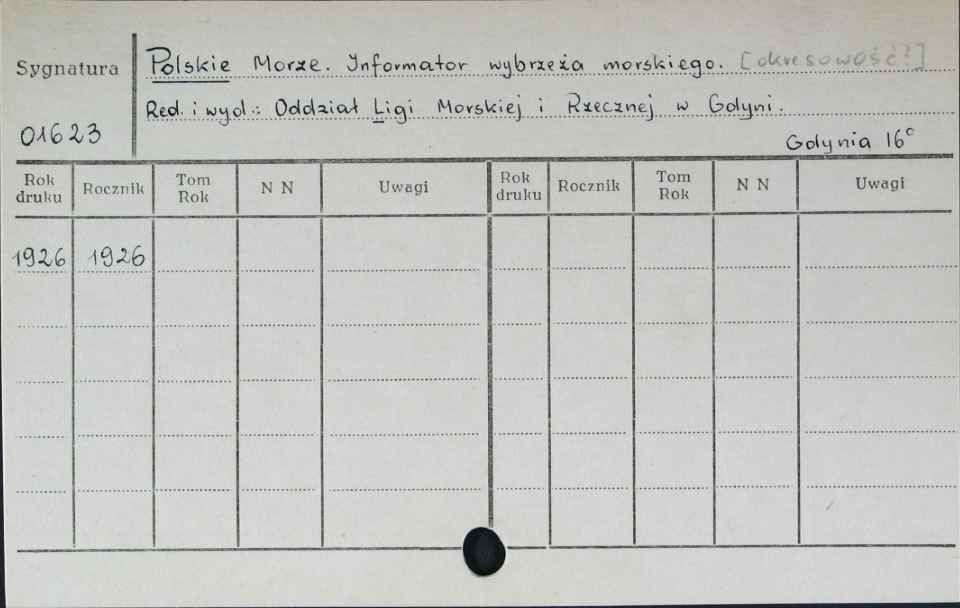 Sygnatura
01623
Polskie Morze. Informator wybrzeża morskiego. [okresowość?]
Red. i wyd.: Oddział Ligi Morskiej i Rzecznej w Gdyni.
Gdynia 16°
Rok druku Rocznik Tom Rok N N Uwagi Rok druku Rocznik Tom Rok N N Uwagi
1926 1926